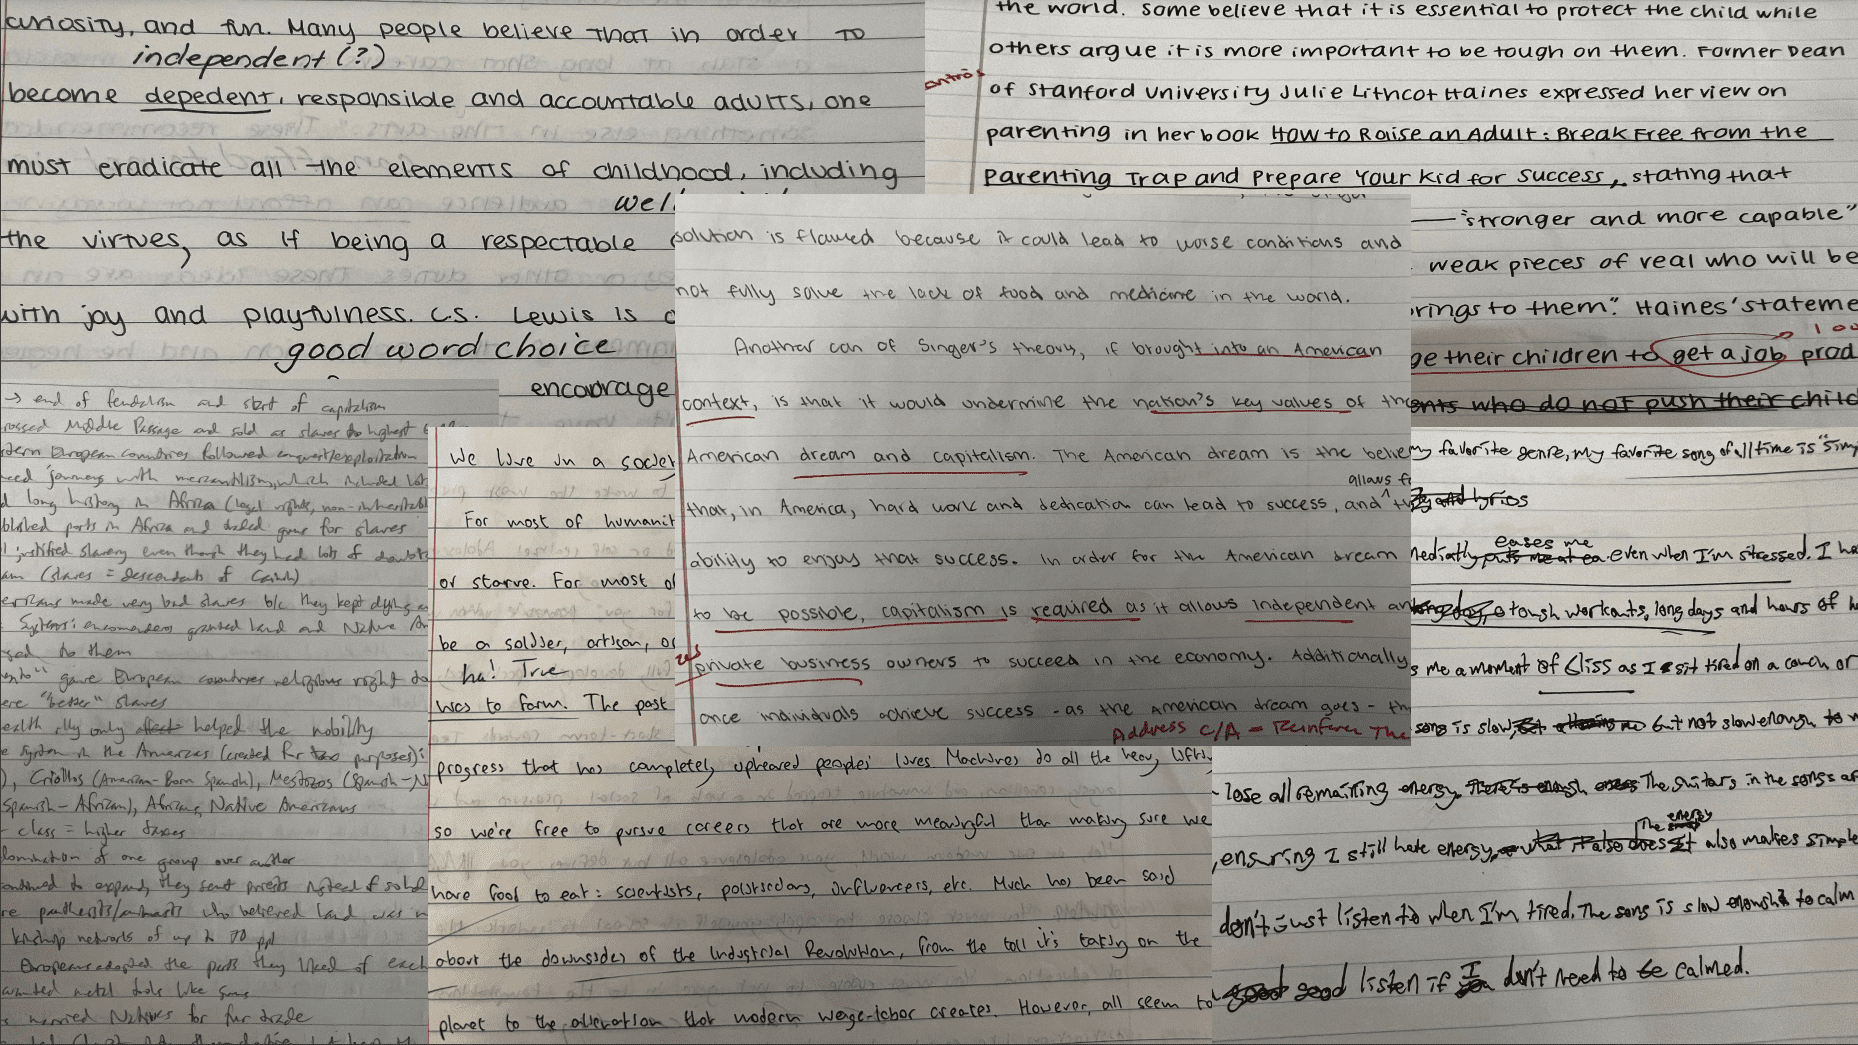 curiosity, and fun. Many people believe that in order to
independent (?)
become depedent, responsible and accountable adults, one
must eradicate all the elements of childhood, including
well
the virtues, as if being a respectable
with joy and playfulness. C.S. Lewis is
good word choice
encourage
the world. Some believe that it is essential to protect the child while
others argue it is more important to be tough on them. Former Dean
of Stanford University Julie Lithcot Haines expressed her view on
parenting in her book How to Raise an Adult: Break Free from the
Parenting Trap and Prepare Your Kid for Success, stating that
"stronger and more capable"
weak pieces of veal who will be
brings to them." Haines' stateme
ge their children to get a job prod
ents who do not push their child
solution is flawed because it could lead to worse conditions and
not fully solve the lack of food and medicine in the world.
Another con of Singer's theory, if brought into an American
context, is that it would undermine the nation's key values of the
American dream and capitalism. The American dream is the belie
allows f
that, in America, hard work and dedication can lead to success, and th
ability to enjoy that success. In order for the American dream
to be possible, capitalism is required as it allows independent an
private business owners to succeed in the economy. Additionally
once individuals achieve success - as the American dream goes - th
Address C/A = Reinforce The
→ end of feudalism and start of capitalism
rossed Middle Passage and sold as slaves to highest
stern European countries followed conquest/exploitation
journeys with mercantilism, which included
long history in Africa (legal rights, non-inheritabl
blished ports in Africa and traded guns for slaves
justified slavery even though they had lots of doubts
am (slaves = descendants of Canaan)
ericans made very bad slaves b/c they kept dying
Systems: encomenderos granted land and Native Am
to them
gave European countries religious right to
ere "better" slaves
ealth rlly only affect helped the nobility
e System in the Americas (created for two purposes):
), Criollos (American-Born Spanish), Mestizos (Spanish-N
Spanish-African), African, Native Americans
class = higher taxes
domination of one group over another
ontinued to expand, they sent priests instead of sold
re pantheists/animists who believed land was
kinship networks of up to 70 ppl
Europeans adopted the parts they liked of each
wanted metal tools like guns
married Natives for fur trade
We live in a societ
For most of humanit
or starve. For most of
be a soldier, artisan, or
ha! True
was to farm. The past
progress that has completely upheaved peoples' lives. Machines do all the heavy lifti
so we're free to pursue careers that are more meaningful than making sure we
have food to eat: scientists, politicians, influencers, etc. Much has been said
about the downsides of the Industrial Revolution, from the toll it's taking on the
planet to the alienation that modern wage-labor creates. However, all seem to
my favorite genre, my favorite song of all time is "Simp
and lyrics
eases me
mediatly puts me at ea even when I'm stressed. I ha
long day, tough workouts, long days and hours of h
s me a moment of bliss as I sit tired on a couch or
song is slow, but not slow enough to
lose all remaining energy. There is enough The guitars in the songs ar
The energy
, ensuring I still have energy, what it also does It also makes simple
don't just listen to when I'm tired. The song is slow enough to calm
good good listen if I you don't need to be calmed.